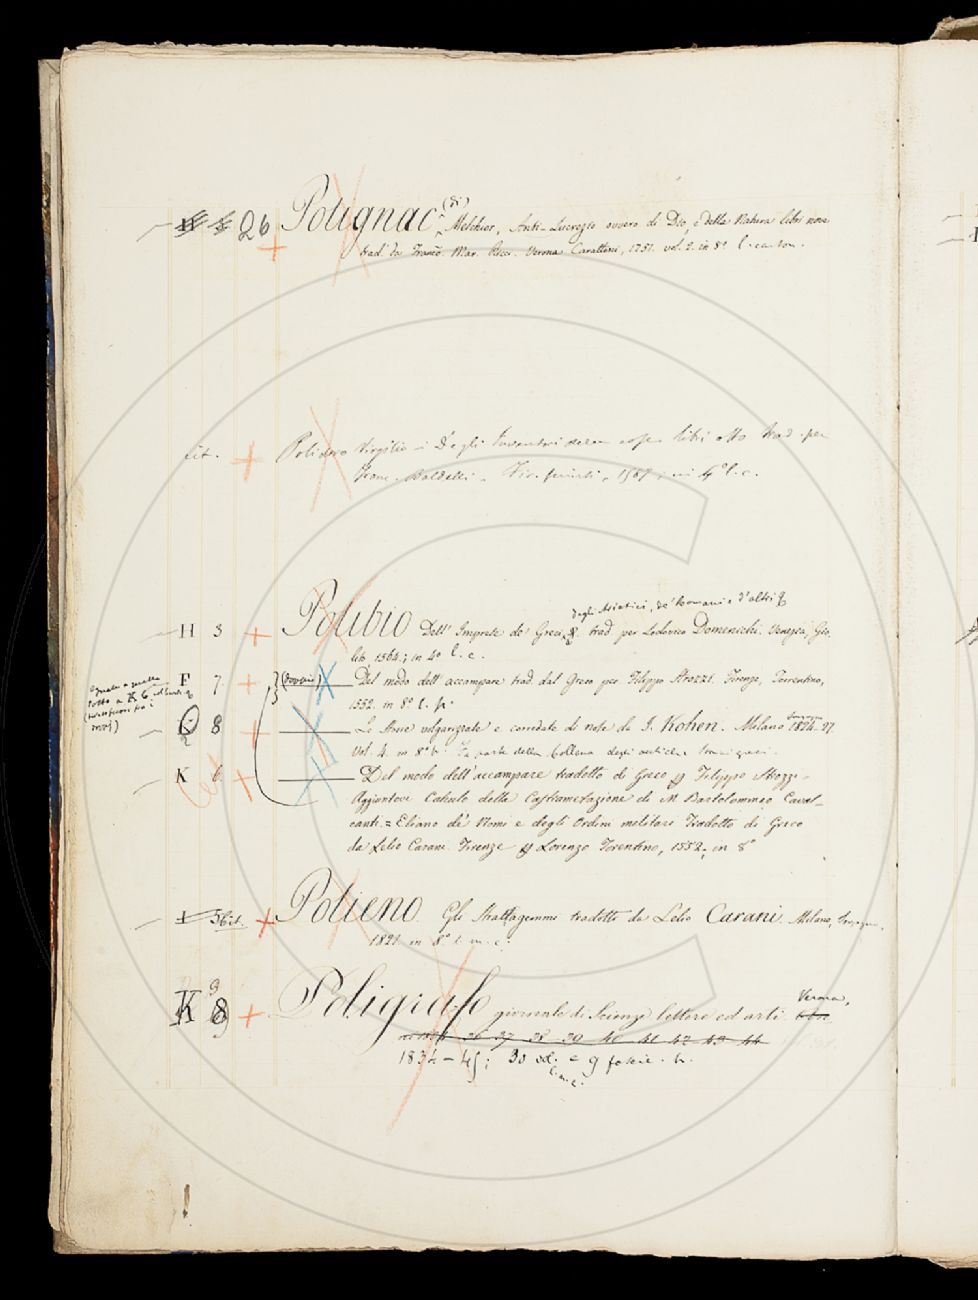 26 Polignac (di) Melchior, Anti-Lucrezio ovvero di Dio, e della Natura libri nove
trad. da Franc. Mar. Ricci. Verona Carattoni, 1751. vol. 2. in 8º l. carton.
Lit. Polidoro Virgilio - Degli Inventori delle cose libri otto trad. per
Franc. Baldelli - Fir. Giunti, 1587; in 4º l. c.
degli Asiatici, de' Romani e d'altri
H 3 Polibio Dell' Imprese de' Greci, & trad per Lodovico Domenichi. Venezia, Gio
lito 1564; in 4º l. c.
F 7. (doppio) Del modo dell' accampare trad. dal Greco per Filippo Strozzi. Firenze, Torrentino,
1552. in 8º l. p.
8 Le Storie volgarizzate e corredate di note da I. Kohen. Milano 1824-27
Vol. 4. in 8º Fa parte della Collana degli antichi
K 6 Del modo dell'accampare tradotto di Greco p Filippo Strozzi.
Aggiuntovi Calculo della Castrametazione di M. Bartolommeo Caval-
canti. = Eliano de' Nomi e degli Ordini militari Tradotto di Greco
da Lelio Carani. Firenze p Lorenzo Torentino, 1552; in 8º
3bis. Polieno. Gli Strattagemmi tradotti da Lelio Carani. Milano, Sonzogno,
1821 in 8º l. m. c.
K 8 9 Poligrafo giornale di Scienze lettere ed arti. Verona,
36 37 38 39 40 41 42 43 44
1834-45; 30 vol. e 9 fascic.
l. m. c.